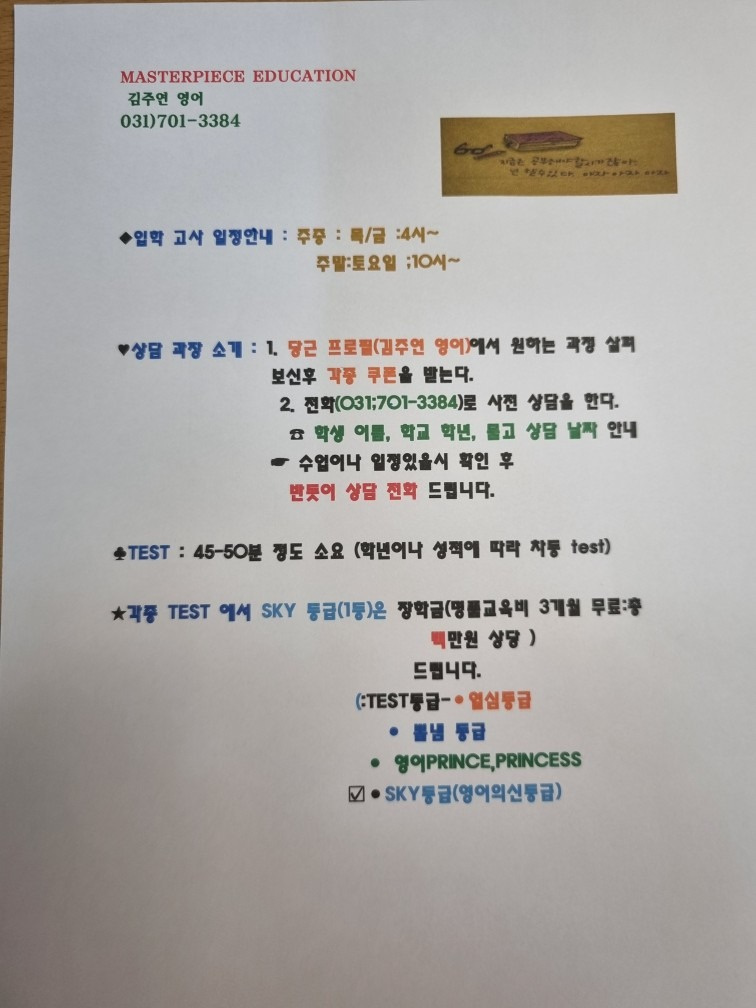 MASTERPIECE EDUCATION
김주연 영어
031)701-3384
지금은 공부해야할시기란다
넌 할수있다 아자 아자 아자
◆입학 고사 일정안내 : 주중 : 목/금 :4시~
주말:토요일 ;10시~
♥상담 과장 소개 : 1. 당근 프로필(김주연 영어)에서 원하는 과정 살펴
보신후 각종 쿠폰을 받는다.
2. 전화(031;701-3384)로 사전 상담을 한다.
☎ 학생 이름, 학교 학년, 물고 상담 날짜 안내
☛ 수업이나 일정있을시 확인 후
반듯이 상담 전화 드립니다.
♠TEST : 45-50분 정도 소요 (학년이나 성적에 따라 차등 test)
★각종 TEST 에서 SKY 등급(1등)은 장학금(명품교육비 3개월 무료:총
백만원 상당 )
드립니다.
(:TEST등급-•열심등급
• 뽐냄 등급
• 영어PRINCE,PRINCESS
☑•SKY등급(영어의신등급)